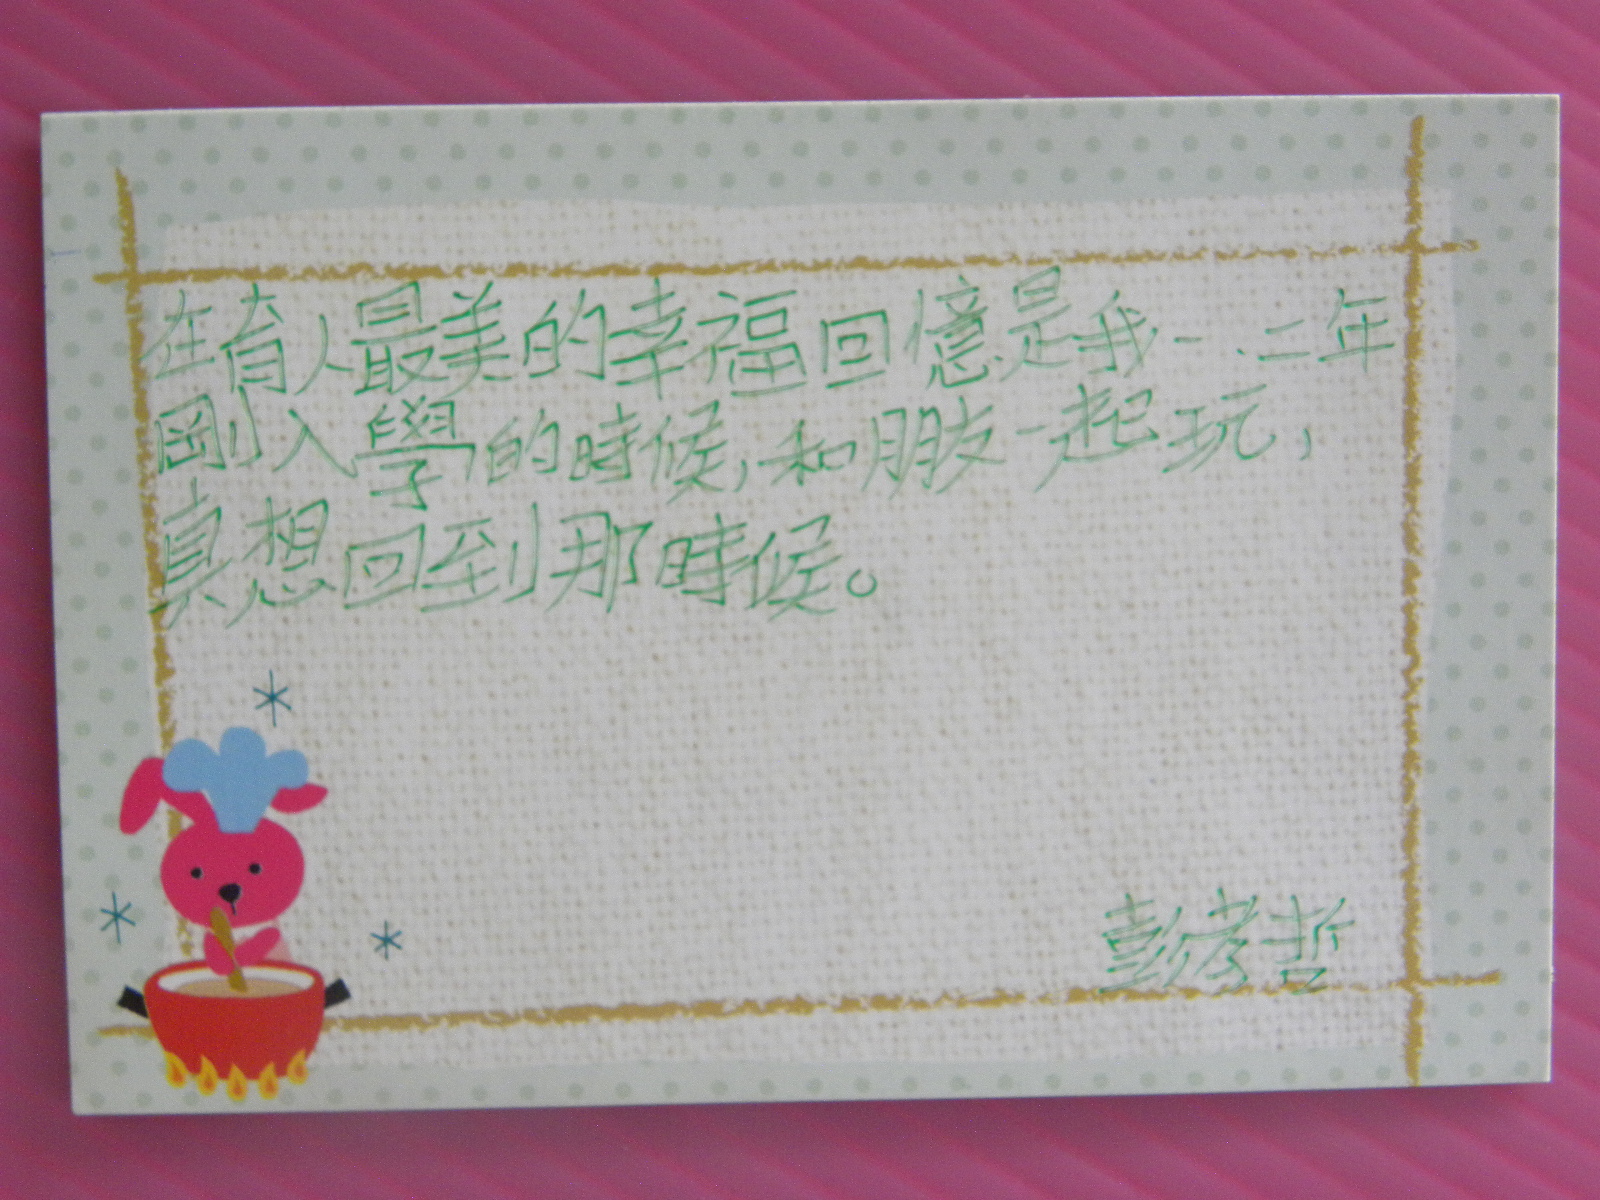 在育人最美的幸福回憶是我一、二年
剛入學的時候,和朋友一起玩,
真想回到那時候。
彭孝哲